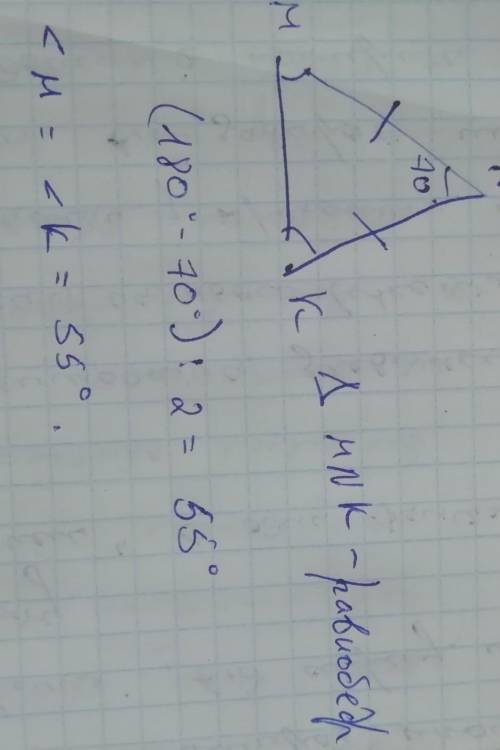 M
70°
K
Δ MNK - равнобедр
(180° - 70°) : 2 = 55°
< M = < K = 55° .